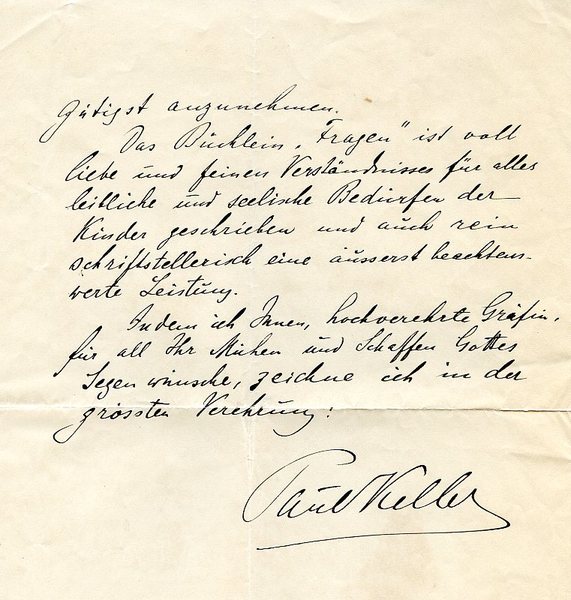 gütigst anzunehmen.
Das Büchlein „Fragen" ist voll
Liebe und feinen Verständnisses für alles
leibliche und seelische Bedürfen der
Kinder geschrieben und auch rein
schriftstellerisch eine äusserst beachtens-
werte Leistung.
Indem ich Ihnen, hochverehrte Gräfin,
für all Ihr Mühen und Schaffen Gottes
Segen wünsche, zeichne ich in der
grössten Verehrung:
Paul Keller